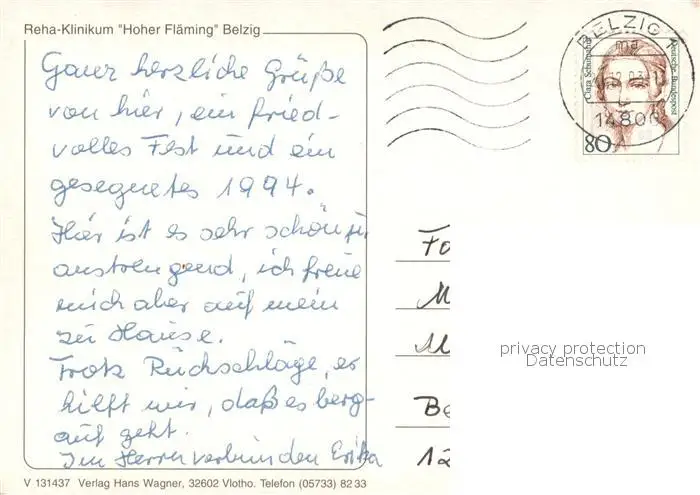 Reha-Klinikum "Hoher Fläming" Belzig
Ganz herzliche Grüße
von hier, ein fried-
volles Fest und ein
gesegnetes 1994.
Hier ist es sehr schön,
anstrengend, ich freue
mich aber auf mein
zu Hause.
Trotz Rückschläge, es
hilft mir, daß es berg-
auf geht.
Im Herrn verbunden Erika
BELZIG 1
ma
14806
Clara Schumann
Deutsche Bundespost
80
Fa
M
M
Be
12
privacy protection
Datenschutz
V 131437 Verlag Hans Wagner, 32602 Vlotho. Telefon (05733) 82 33